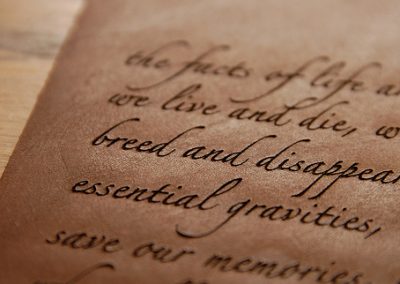 the facts of life a
we live and die, w
breed and disappear
essential gravities,
save our memories,